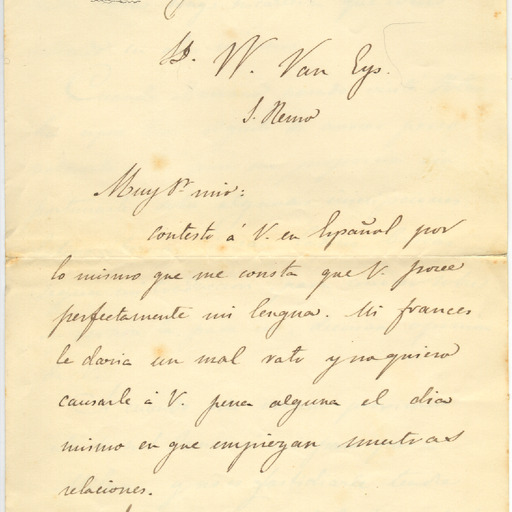 Sr. W. Van Eys.
S. Remo
Muy Sr. mio:
contesto á V. en Español por
lo mismo que me consta que V. posee
perfectamente mi lengua. Mi frances
le daria un mal rato y no quiero
causarle á V. pena alguna el dia
mismo en que empiezan nuestras
relaciones.